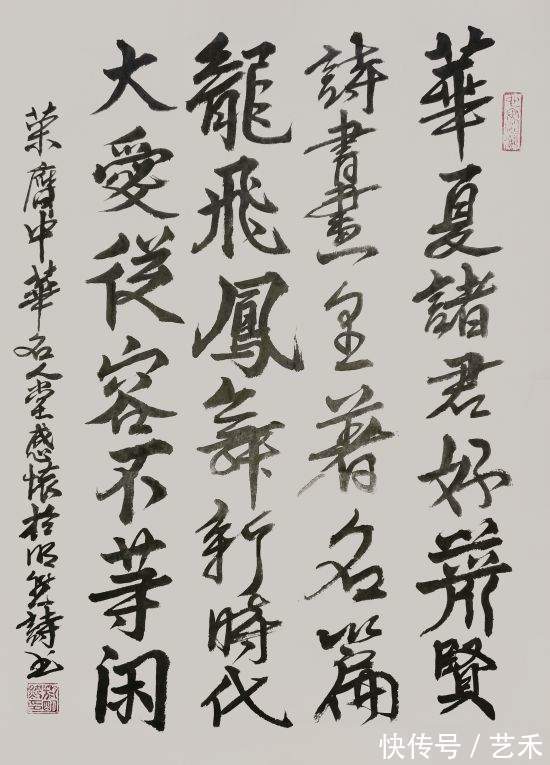 華夏諸君好賢
詩書畫里著名篇
龍飛鳳舞新時代
大愛從容不等闲
荣膺中華名人堂感懷於詩书
快传号 / 艺禾